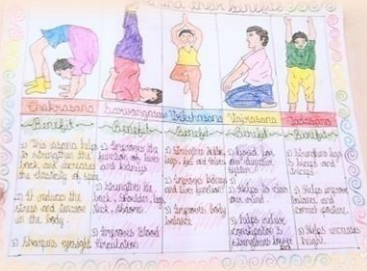 and their benefits
Chakrasana
Sarvangasana
Vrikshasana
Vajrasana
Tadasana
Benefit
Benefit
Benefit
Benefit
Benefit
1) This asana helps
to strengthen the
back and increases
the elasticity of
2) It reduces the
stress and tension
in the body.
3) Sharpens eyesight
1) Improves the
function of
and kidneys
2) Strengthens the
back, shoulders, legs,
neck, Abdomen.
3) Improves blood
circulation
1) Strengthens
legs, feet and
2) Improves kidney
and liver function
3) Improves body
balance
1) Good for
our digestive
system.
2) Helps to clear
our mind
3) Helps relieve
constipation &
strengthens lower
1) Strengthens legs
and
2) Helps improve
and
correct posture.
3) Helps increases
height.